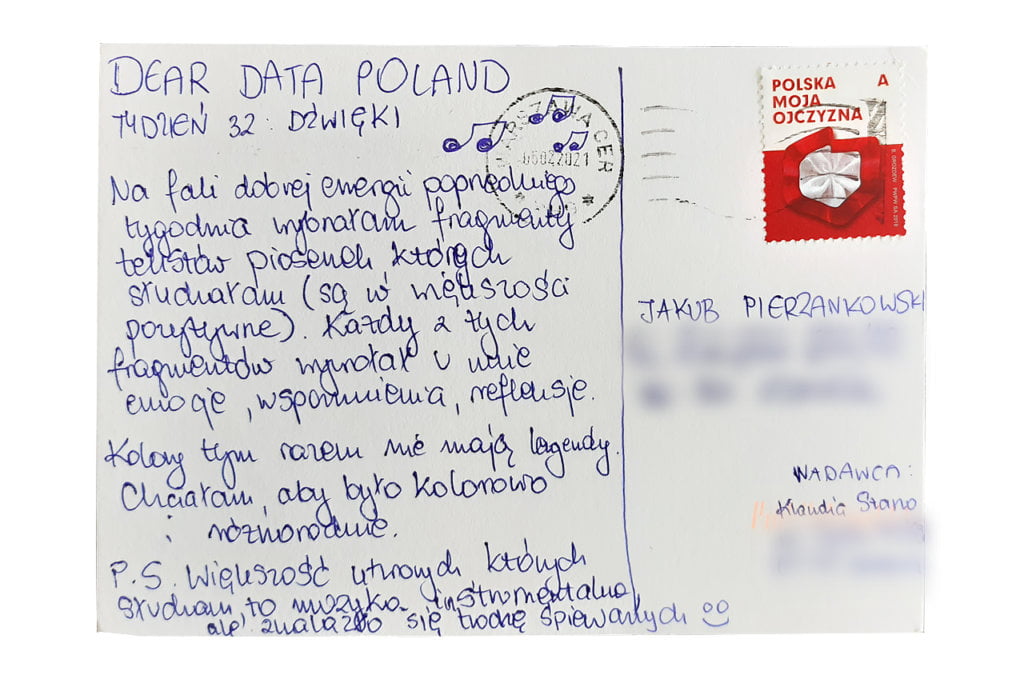 DEAR DATA POLAND
TYDZIEŃ 32: DŹWIĘKI
Na fali dobrej energii poprzedniego
tygodnia wybrałam fragmenty
tekstów piosenek których
słuchałam (są w większości
pozytywne). Każdy z tych
fragmentów wywołał u mnie
emocje, wspomnienia, refleksje.
Kolory tym razem nie mają legendy.
Chciałam, aby było kolorowo
i różnorodnie.
P.S. Większość utworów których
słucham to muzyka instrumentalna,
ale znalazło się trochę śpiewanych
WARSZAWA CER
05022021
POLSKA A
MOJA
OJCZYZNA
JAKUB PIERZANKOWSKI
NADAWCA:
Klaudia Stano